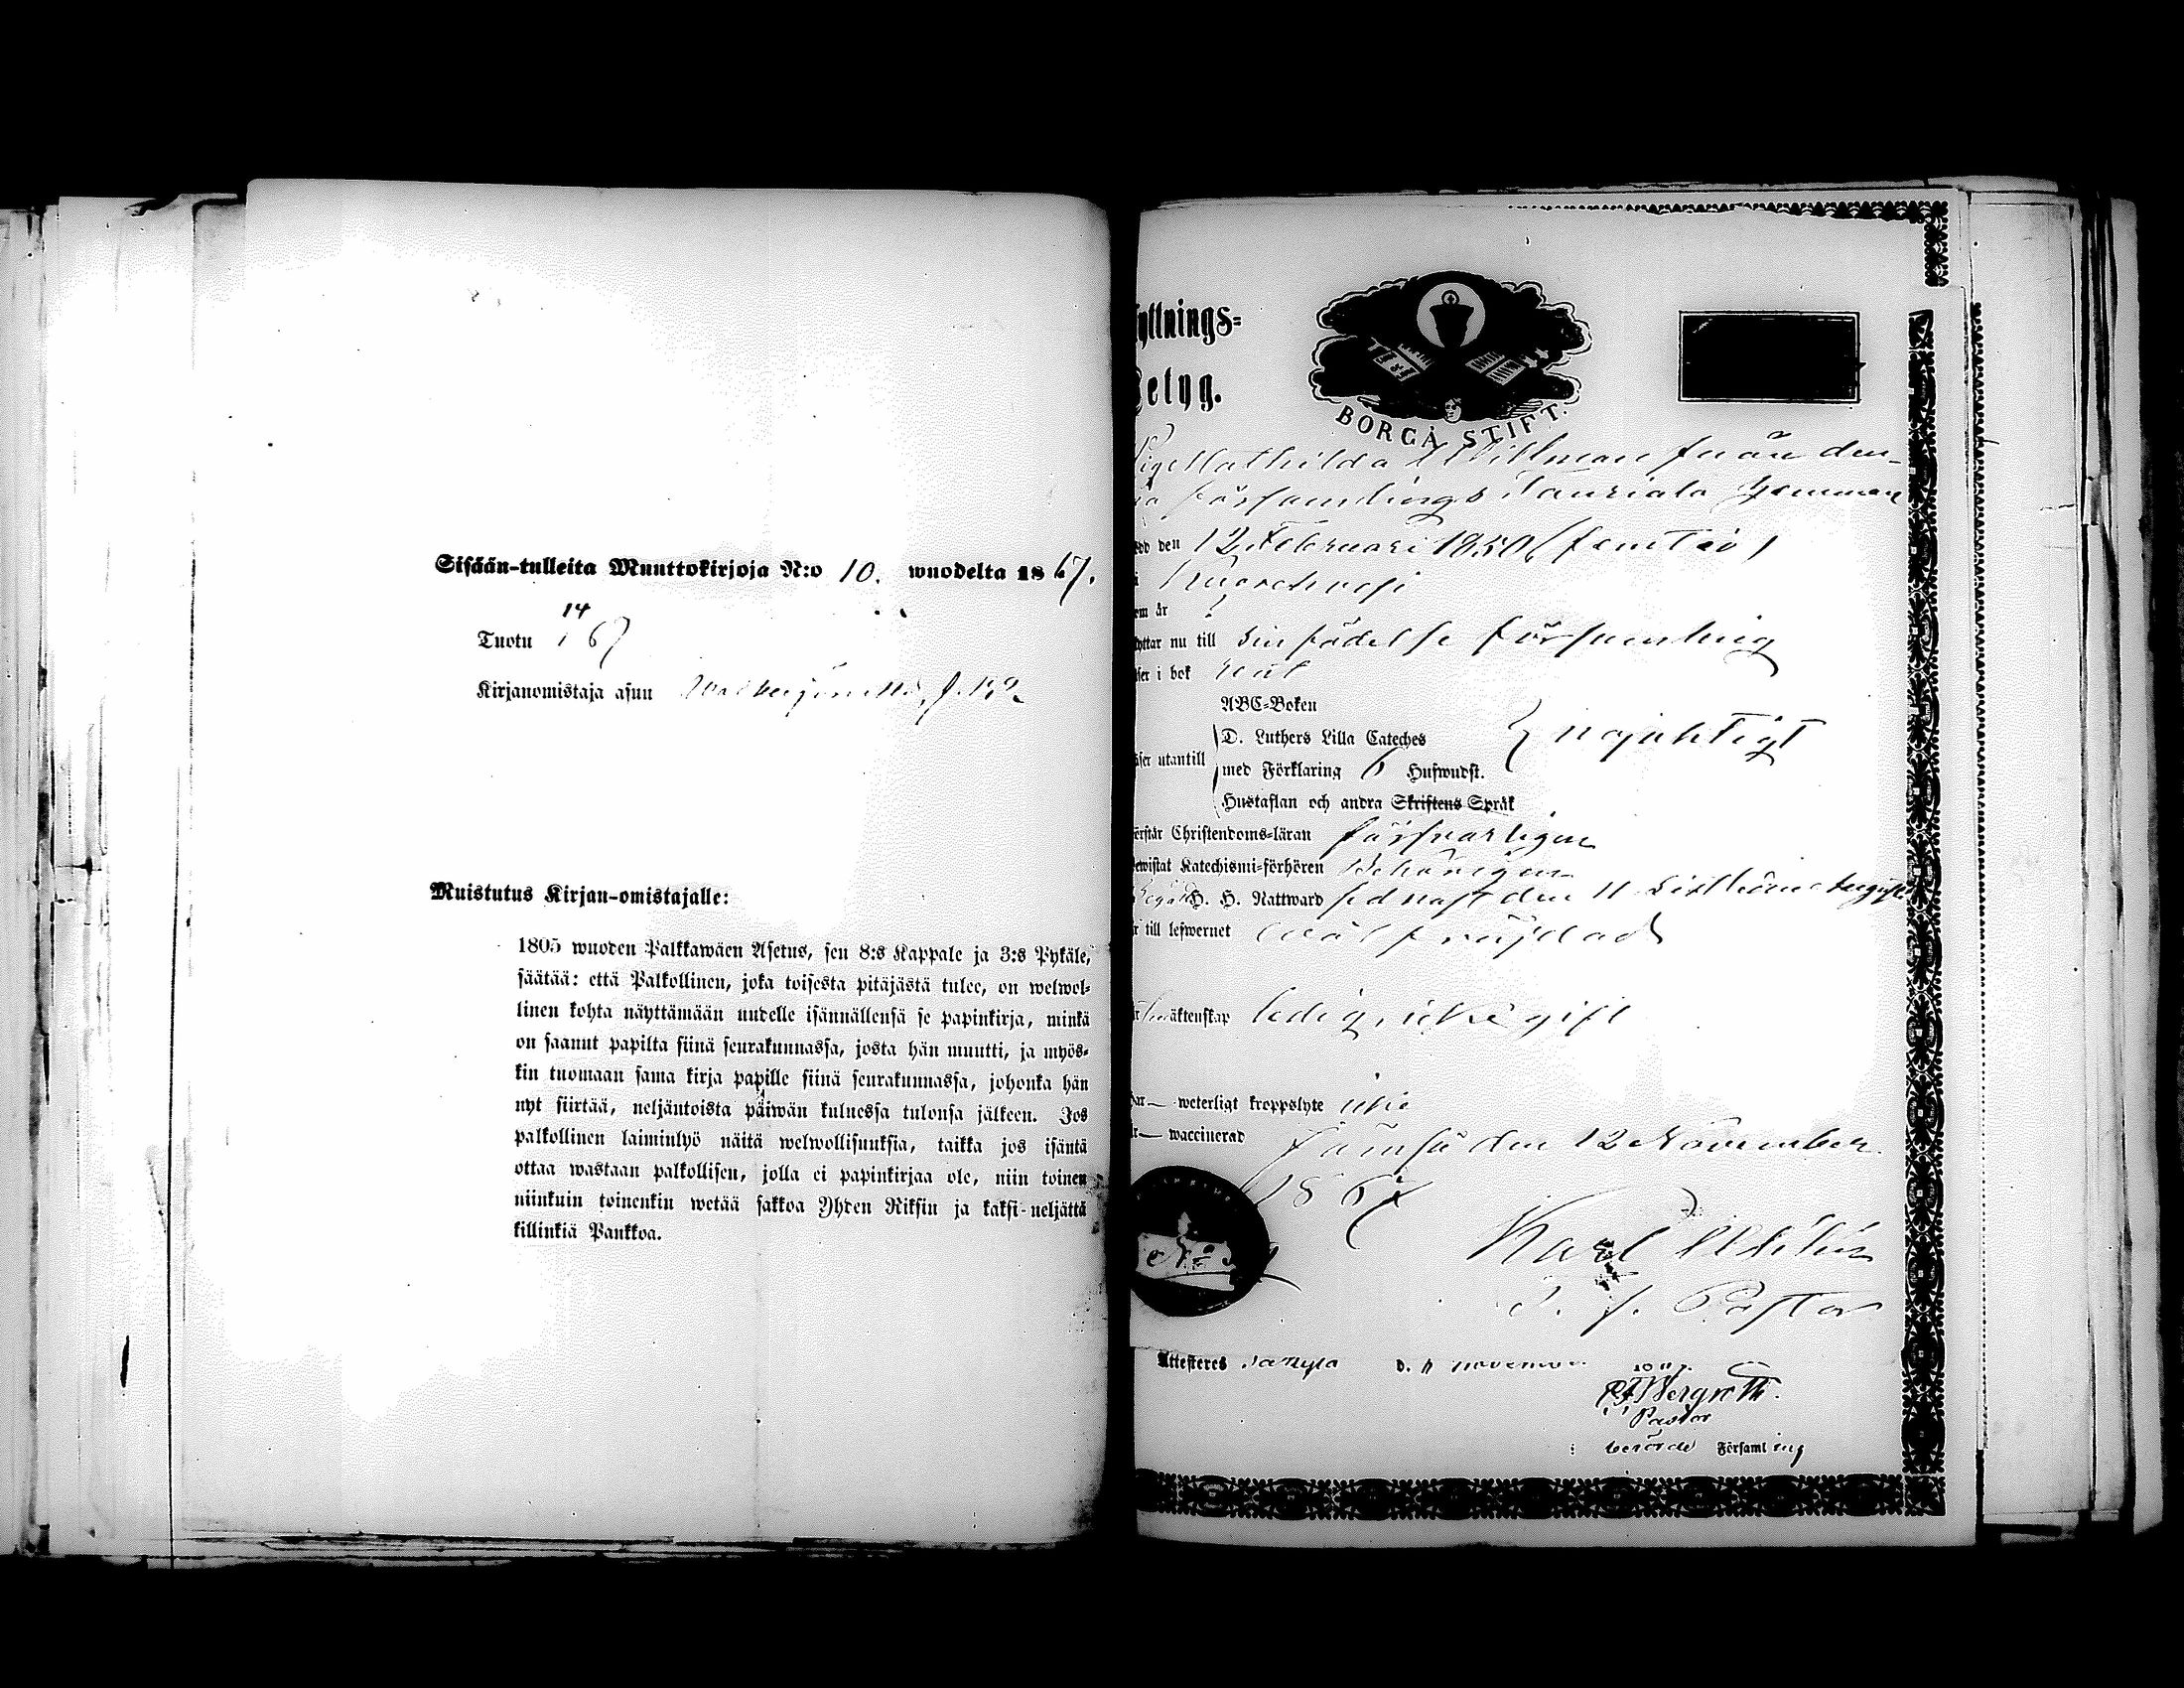 Sisään-tulleita Muuttokirjoja N:o 10. wuodelta 1867.
14
Tuotu 1 67
Kirjanomistaja asuu
Muistutus Kirjan-omistajalle:
1805 wuoden Palkkawäen Asetus, sen 8:s Kappale ja 3:s Pykäle,
säätää: että Palkollinen, joka toisesta pitäjästä tulee, on welwol-
linen kohta näyttämään uudelle isännällensä se papinkirja, minkä
on saanut papilta siinä seurakunnassa, josta hän muutti, ja myös-
kin tuomaan sama kirja papille siinä seurakunnassa, johonka hän
nyt siirtää, neljäntoista päiwän kuluessa tulonsa jälkeen. Jos
palkollinen laiminlyö näitä welwollisuuksia, taikka jos isäntä
ottaa wastaan palkollisen, jolla ei papinkirjaa ole, niin toinen
niinkuin toinenkin wetää sakkoa Yhden Riksin ja kaksi-neljättä
killinkiä Pankkoa.
yttnings-
Betyg.
BORGÅ STIFT.
Pig Mathilda Willman från den-
na församlings
ödd den 12 Februari 1850 (femtio)
i Kuorehvesi
em år
yttar nu till sin födelse församling
äser i bok wäl
ABC-Boken
D. Luthers Lilla Cateches
äser utantill med Förklaring 6 Hufwudst. nöjaktigt
Hustaflan och andra Skriftens Språk
örstår Christendoms-läran försvarligen
ewistat Katechismi-förhören Behörigen
Begått H. H. Nattward sednast den 11 sistlidne Augusti
r till lefwernet wäl frejdad
äktenskap ledig, icke gift
ar — weterligt kroppslyte icke
r — waccinerad
Jämsä den 12 November
1867
Karl
T. f. Pastor
Attesteres d. 11 november 1867.
Bergroth.
Pastor
i berörde Församling